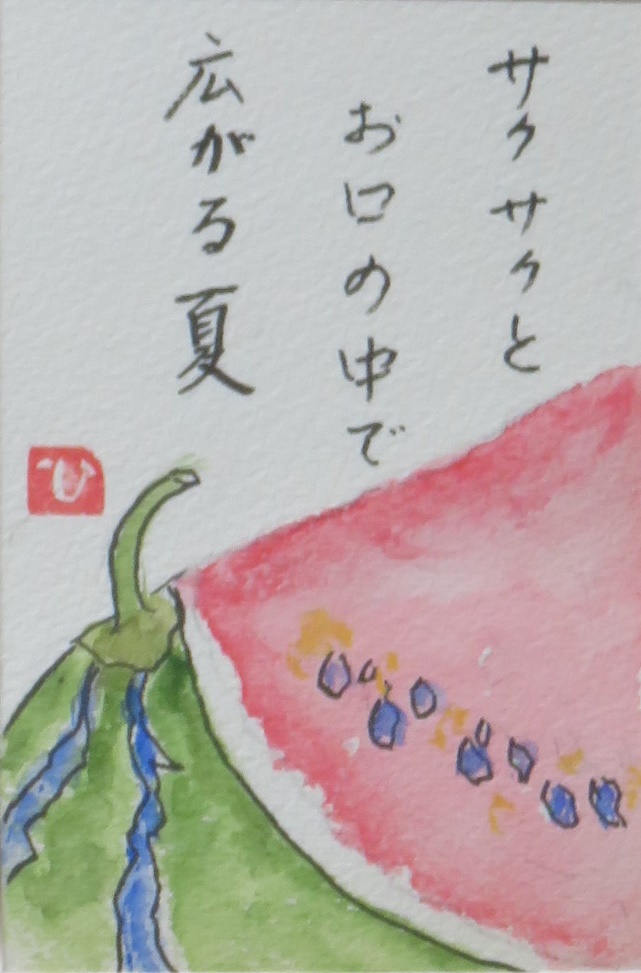 サクサクと
お口の中で
広がる夏
ひ